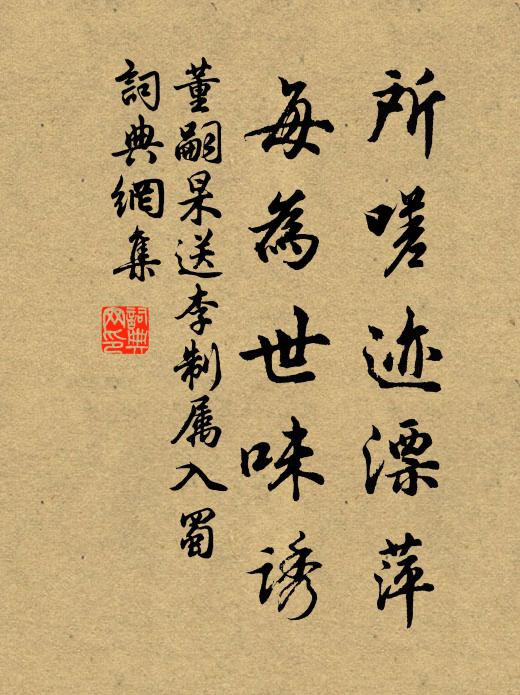 所嗟迹漂萍
每為世味誘
董嗣杲送李制属入蜀
詞典網集
詞典网印